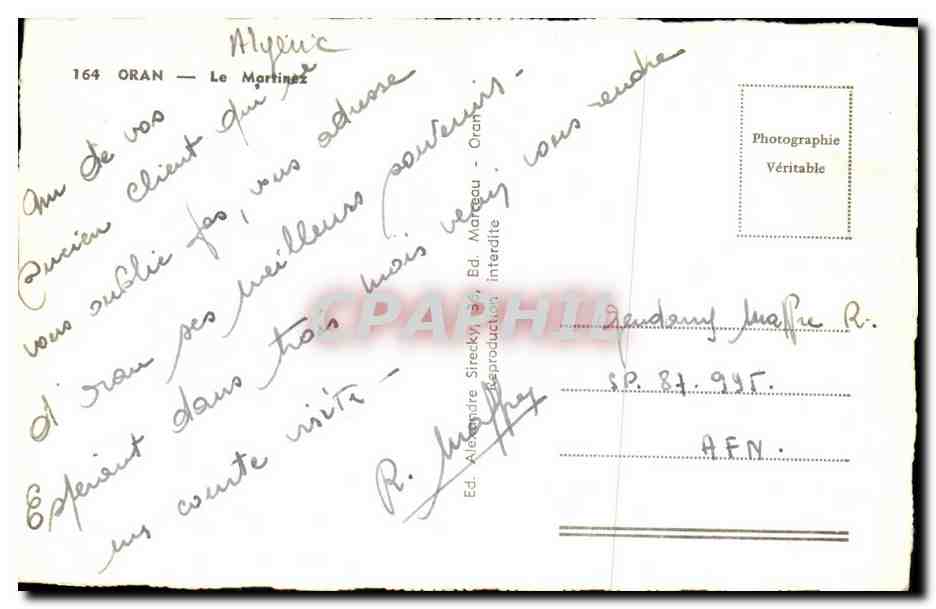 Algérie
164 ORAN — Le Martinez
Un de vos
ancien client qui ne
vous oublie pas, vous adresse
d'oran ses meilleurs souvenirs -
Espérant dans trois mois venir vous rendre
une courte visite -
R. Maffre
Ed. Alexandre Sirecky, 36, Ed. Marceau - Oran
Reproduction interdite
Photographie
Véritable
Gendarm Maffre R.
SP. 87.995.
AFN.
CPARHIU